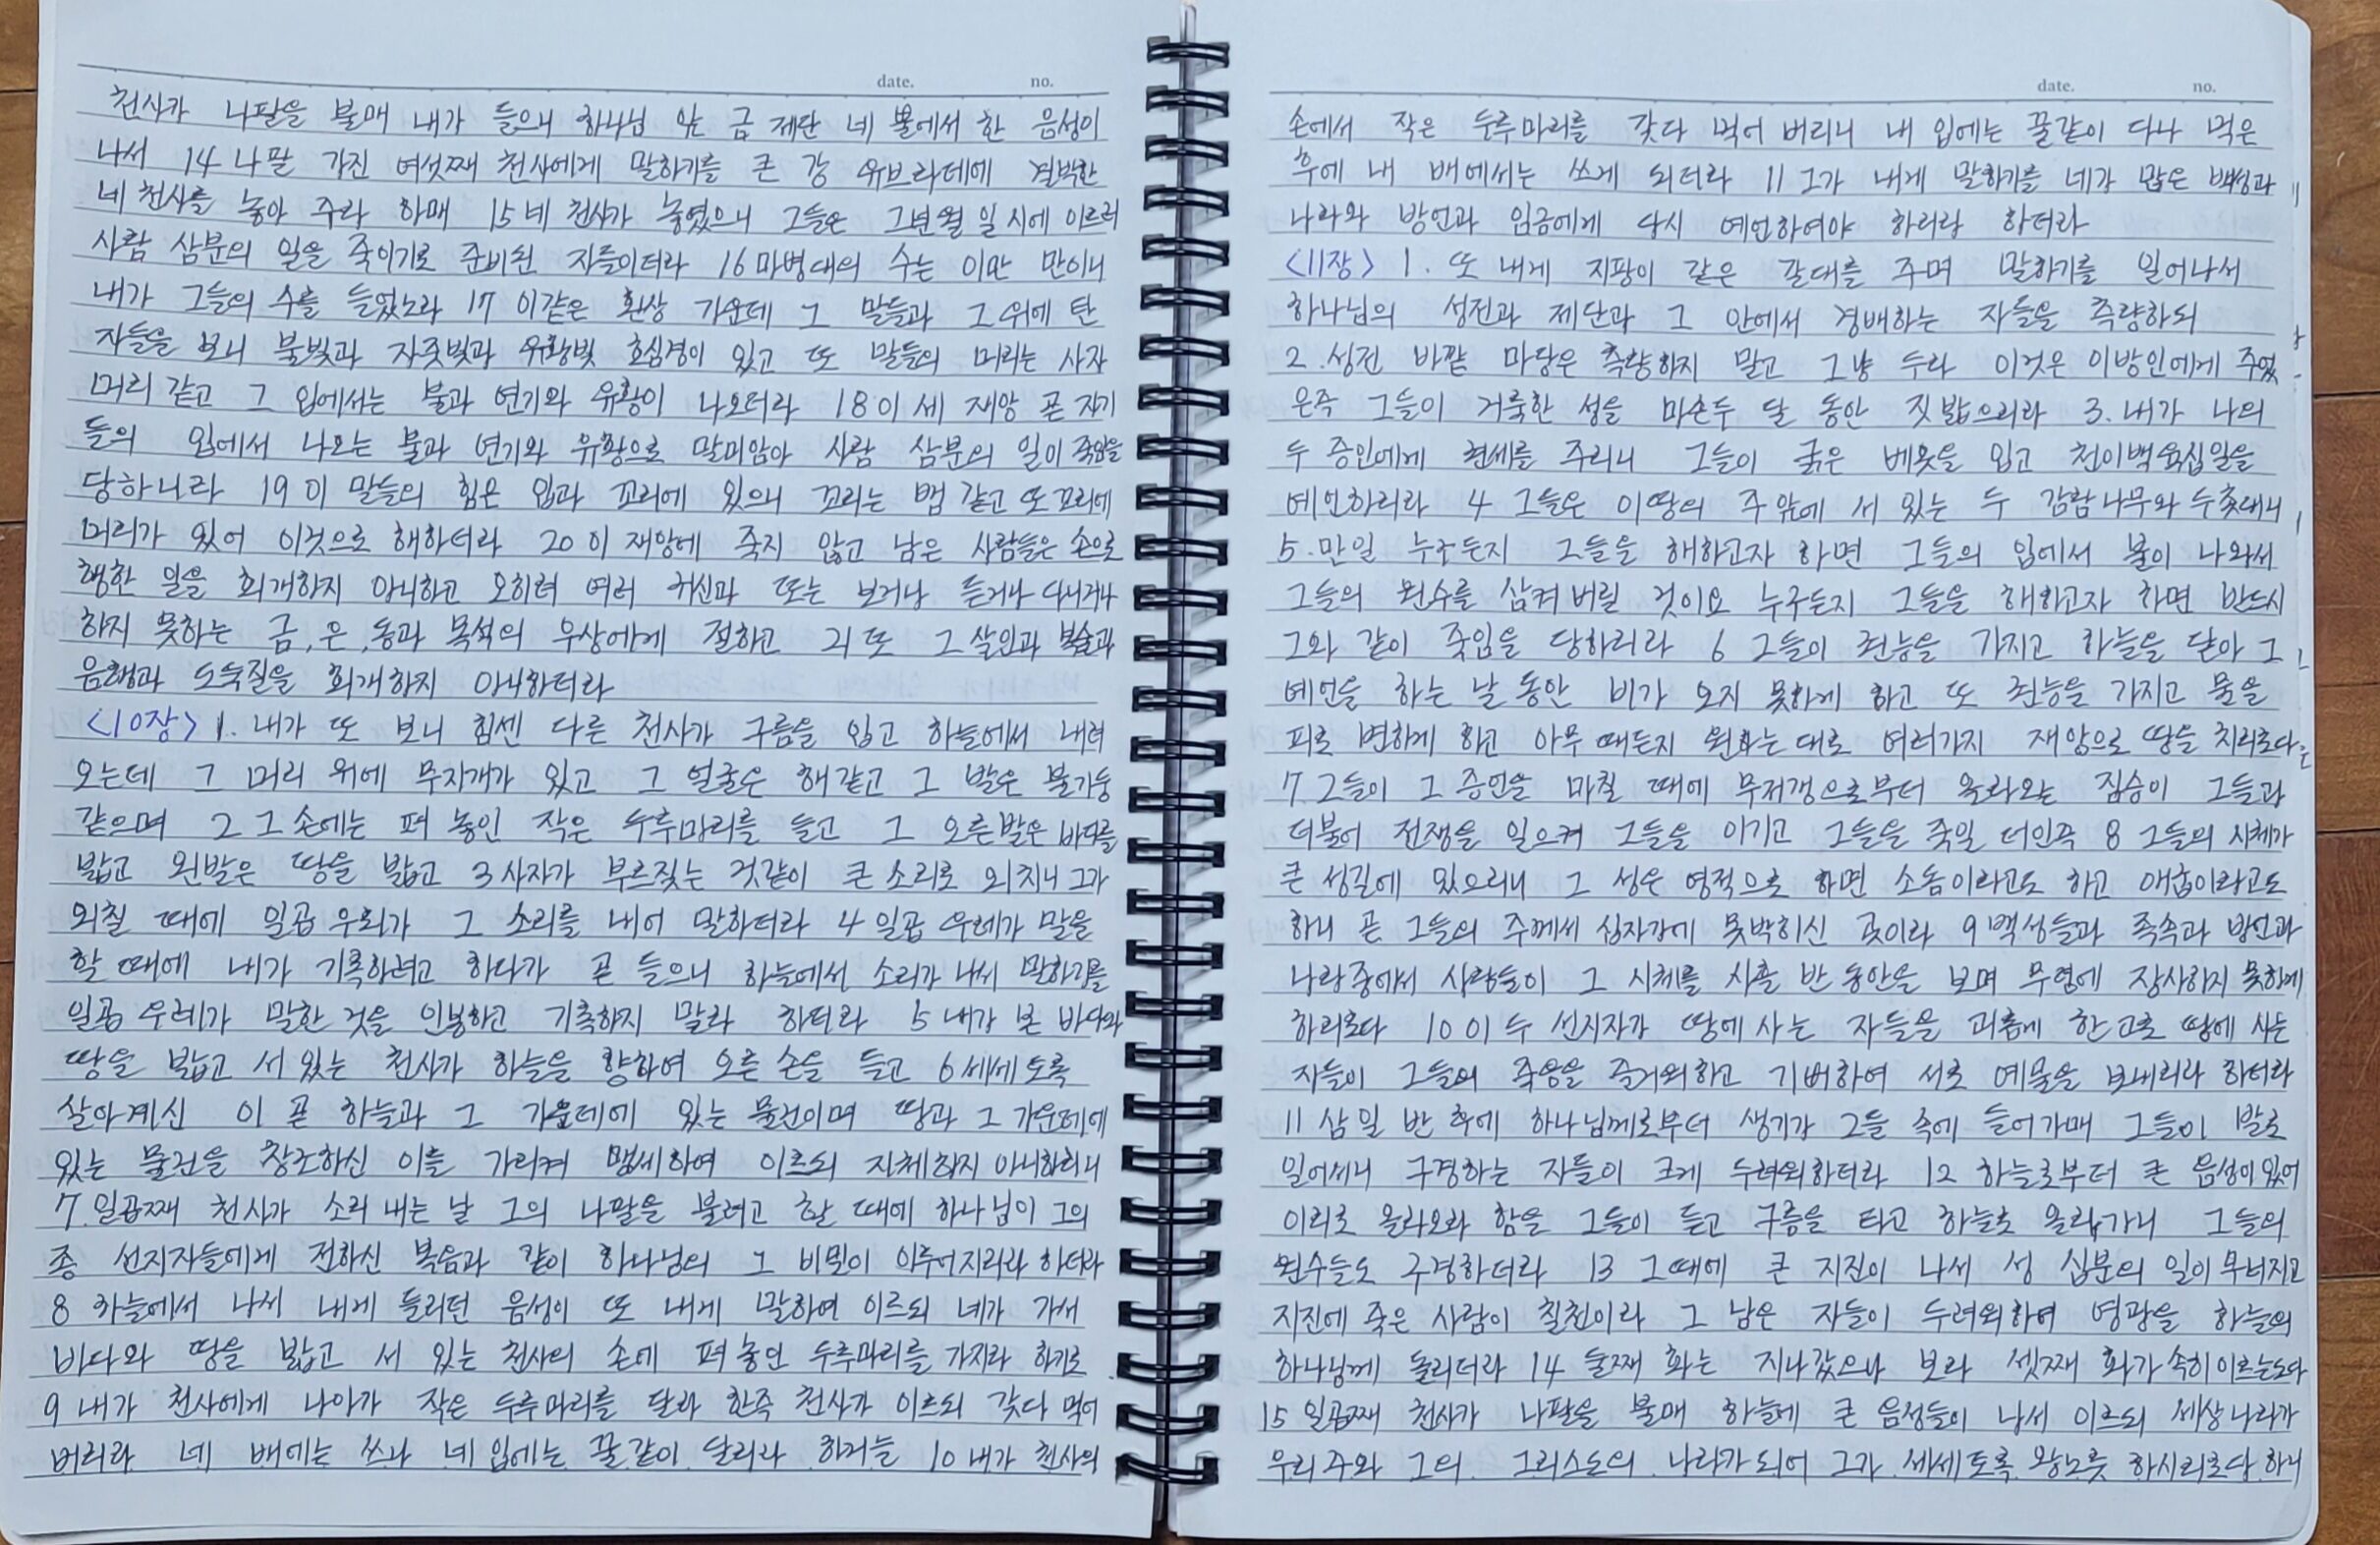 date. no.
천사가 나팔을 불매 내가 들으니 하나님 앞 금 제단 네 뿔에서 한 음성이
나서 14 나팔 가진 여섯째 천사에게 말하기를 큰 강 유브라데에 결박한
네 천사를 놓아 주라 하매 15 네 천사가 놓였으니 그들은 그년월일시에 이르러
사람 삼분의 일을 죽이기로 준비된 자들이더라 16 마병대의 수는 이만 만이니
내가 그들의 수를 들었노라 17 이같은 환상 가운데 그 말들과 그 위에 탄
자들을 보니 불빛과 자줏빛과 유황빛 호심경이 있고 또 말들의 머리는 사자
머리 같고 그 입에서는 불과 연기와 유황이 나오더라 18 이 세 재앙 곧 자기
들의 입에서 나오는 불과 연기와 유황으로 말미암아 사람 삼분의 일이 죽임을
당하니라 19 이 말들의 힘은 입과 꼬리에 있으니 꼬리는 뱀 같고 또 꼬리에
머리가 있어 이것으로 해하더라 20 이 재앙에 죽지 않고 남은 사람들은 손으로
행한 일을 회개하지 아니하고 오히려 여러 귀신과 또는 보거나 듣거나 다니거나
하지 못하는 금, 은, 동과 목석의 우상에게 절하고 21 또 그 살인과 복술과
음행과 도둑질을 회개하지 아니하더라
<10장> 1. 내가 또 보니 힘센 다른 천사가 구름을 입고 하늘에서 내려
오는데 그 머리 위에 무지개가 있고 그 얼굴은 해같고 그 발은 불기둥
같으며 2 그 손에는 펴 놓인 작은 두루마리를 들고 그 오른발은 바다를
밟고 왼발은 땅을 밟고 3 사자가 부르짖는 것같이 큰 소리로 외치니 그가
외칠 때에 일곱 우뢰가 그 소리를 내어 말하더라 4 일곱 우레가 말을
할 때에 내가 기록하려고 하다가 곧 들으니 하늘에서 소리가 나서 말하기를
일곱 우레가 말한 것을 인봉하고 기록하지 말라 하더라 5 내가 본 바다와
땅을 밟고 서 있는 천사가 하늘을 향하여 오른 손을 들고 6 세세토록
살아계신 이 곧 하늘과 그 가운데에 있는 물건이며 땅과 그 가운데에
있는 물건을 창조하신 이를 가리켜 맹세하여 이르되 지체하지 아니하리니
7. 일곱째 천사가 소리 내는 날 그의 나팔을 불려고 할 때에 하나님이 그의
종 선지자들에게 전하신 복음과 같이 하나님의 그 비밀이 이루어지리라 하더라
8 하늘에서 나서 내게 들리던 음성이 또 내게 말하여 이르되 네가 가서
바다와 땅을 밟고 서 있는 천사의 손에 펴 놓인 두루마리를 가지라 하기로
9 내가 천사에게 나아가 작은 두루마리를 달라 한즉 천사가 이르되 갖다 먹어
버리라 네 배에는 쓰나 네 입에는 꿀 같이 달리라 하거늘 10 내가 천사의
date. no.
손에서 작은 두루마리를 갖다 먹어 버리니 내 입에는 꿀같이 다나 먹은
후에 내 배에서는 쓰게 되더라 11 그가 내게 말하기를 네가 많은 백성과
나라와 방언과 임금에게 다시 예언하여야 하리라 하더라
<11장> 1. 또 내게 지팡이 같은 갈대를 주며 말하기를 일어나서
하나님의 성전과 제단과 그 안에서 경배하는 자들을 측량하되
2. 성전 바깥 마당은 측량하지 말고 그냥 두라 이것은 이방인에게 주었
은즉 그들이 거룩한 성을 마흔두 달 동안 짓밟으리라 3. 내가 나의
두 증인에게 권세를 주리니 그들이 굵은 베옷을 입고 천이백육십일을
예언하리라 4 그들은 이땅의 주 앞에 서 있는 두 감람나무와 두 촛대니
5. 만일 누구든지 그들을 해하고자 하면 그들의 입에서 불이 나와서
그들의 원수를 삼켜 버릴 것이요 누구든지 그들을 해하고자 하면 반드시
그와 같이 죽임을 당하리라 6 그들이 권능을 가지고 하늘을 닫아 그
예언을 하는 날 동안 비가 오지 못하게 하고 또 권능을 가지고 물을
피로 변하게 하고 아무 때든지 원하는 대로 여러가지 재앙으로 땅을 치리로다
7. 그들이 그 증언을 마칠 때에 무저갱으로부터 올라오는 짐승이 그들과
더불어 전쟁을 일으켜 그들을 이기고 그들을 죽일 터인즉 8 그들의 시체가
큰 성길에 있으리니 그 성은 영적으로 하면 소돔이라고도 하고 애굽이라고도
하니 곧 그들의 주께서 십자가에 못박히신 곳이라 9 백성들과 족속과 방언과
나라중에서 사람들이 그 시체를 사흘 반 동안을 보며 무덤에 장사하지 못하게
하리로다 10 이 두 선지자가 땅에 사는 자들을 괴롭게 한고로 땅에 사는
자들이 그들의 죽음을 즐거워하고 기뻐하여 서로 예물을 보내리라 하더라
11 삼 일 반 후에 하나님께로부터 생기가 그들 속에 들어가매 그들이 발로
일어서니 구경하는 자들이 크게 두려워하더라 12 하늘로부터 큰 음성이 있어
이리로 올라오라 함을 그들이 듣고 구름을 타고 하늘로 올라가니 그들의
원수들도 구경하더라 13 그때에 큰 지진이 나서 성 십분의 일이 무너지고
지진에 죽은 사람이 칠천이라 그 남은 자들이 두려워하여 영광을 하늘의
하나님께 돌리더라 14 둘째 화는 지나갔으나 보라 셋째 화가 속히 이르는도다
15 일곱째 천사가 나팔을 불매 하늘에 큰 음성들이 나서 이르되 세상 나라가
우리 주와 그의 그리스도의 나라가 되어 그가 세세토록 왕노릇 하시리로다 하니